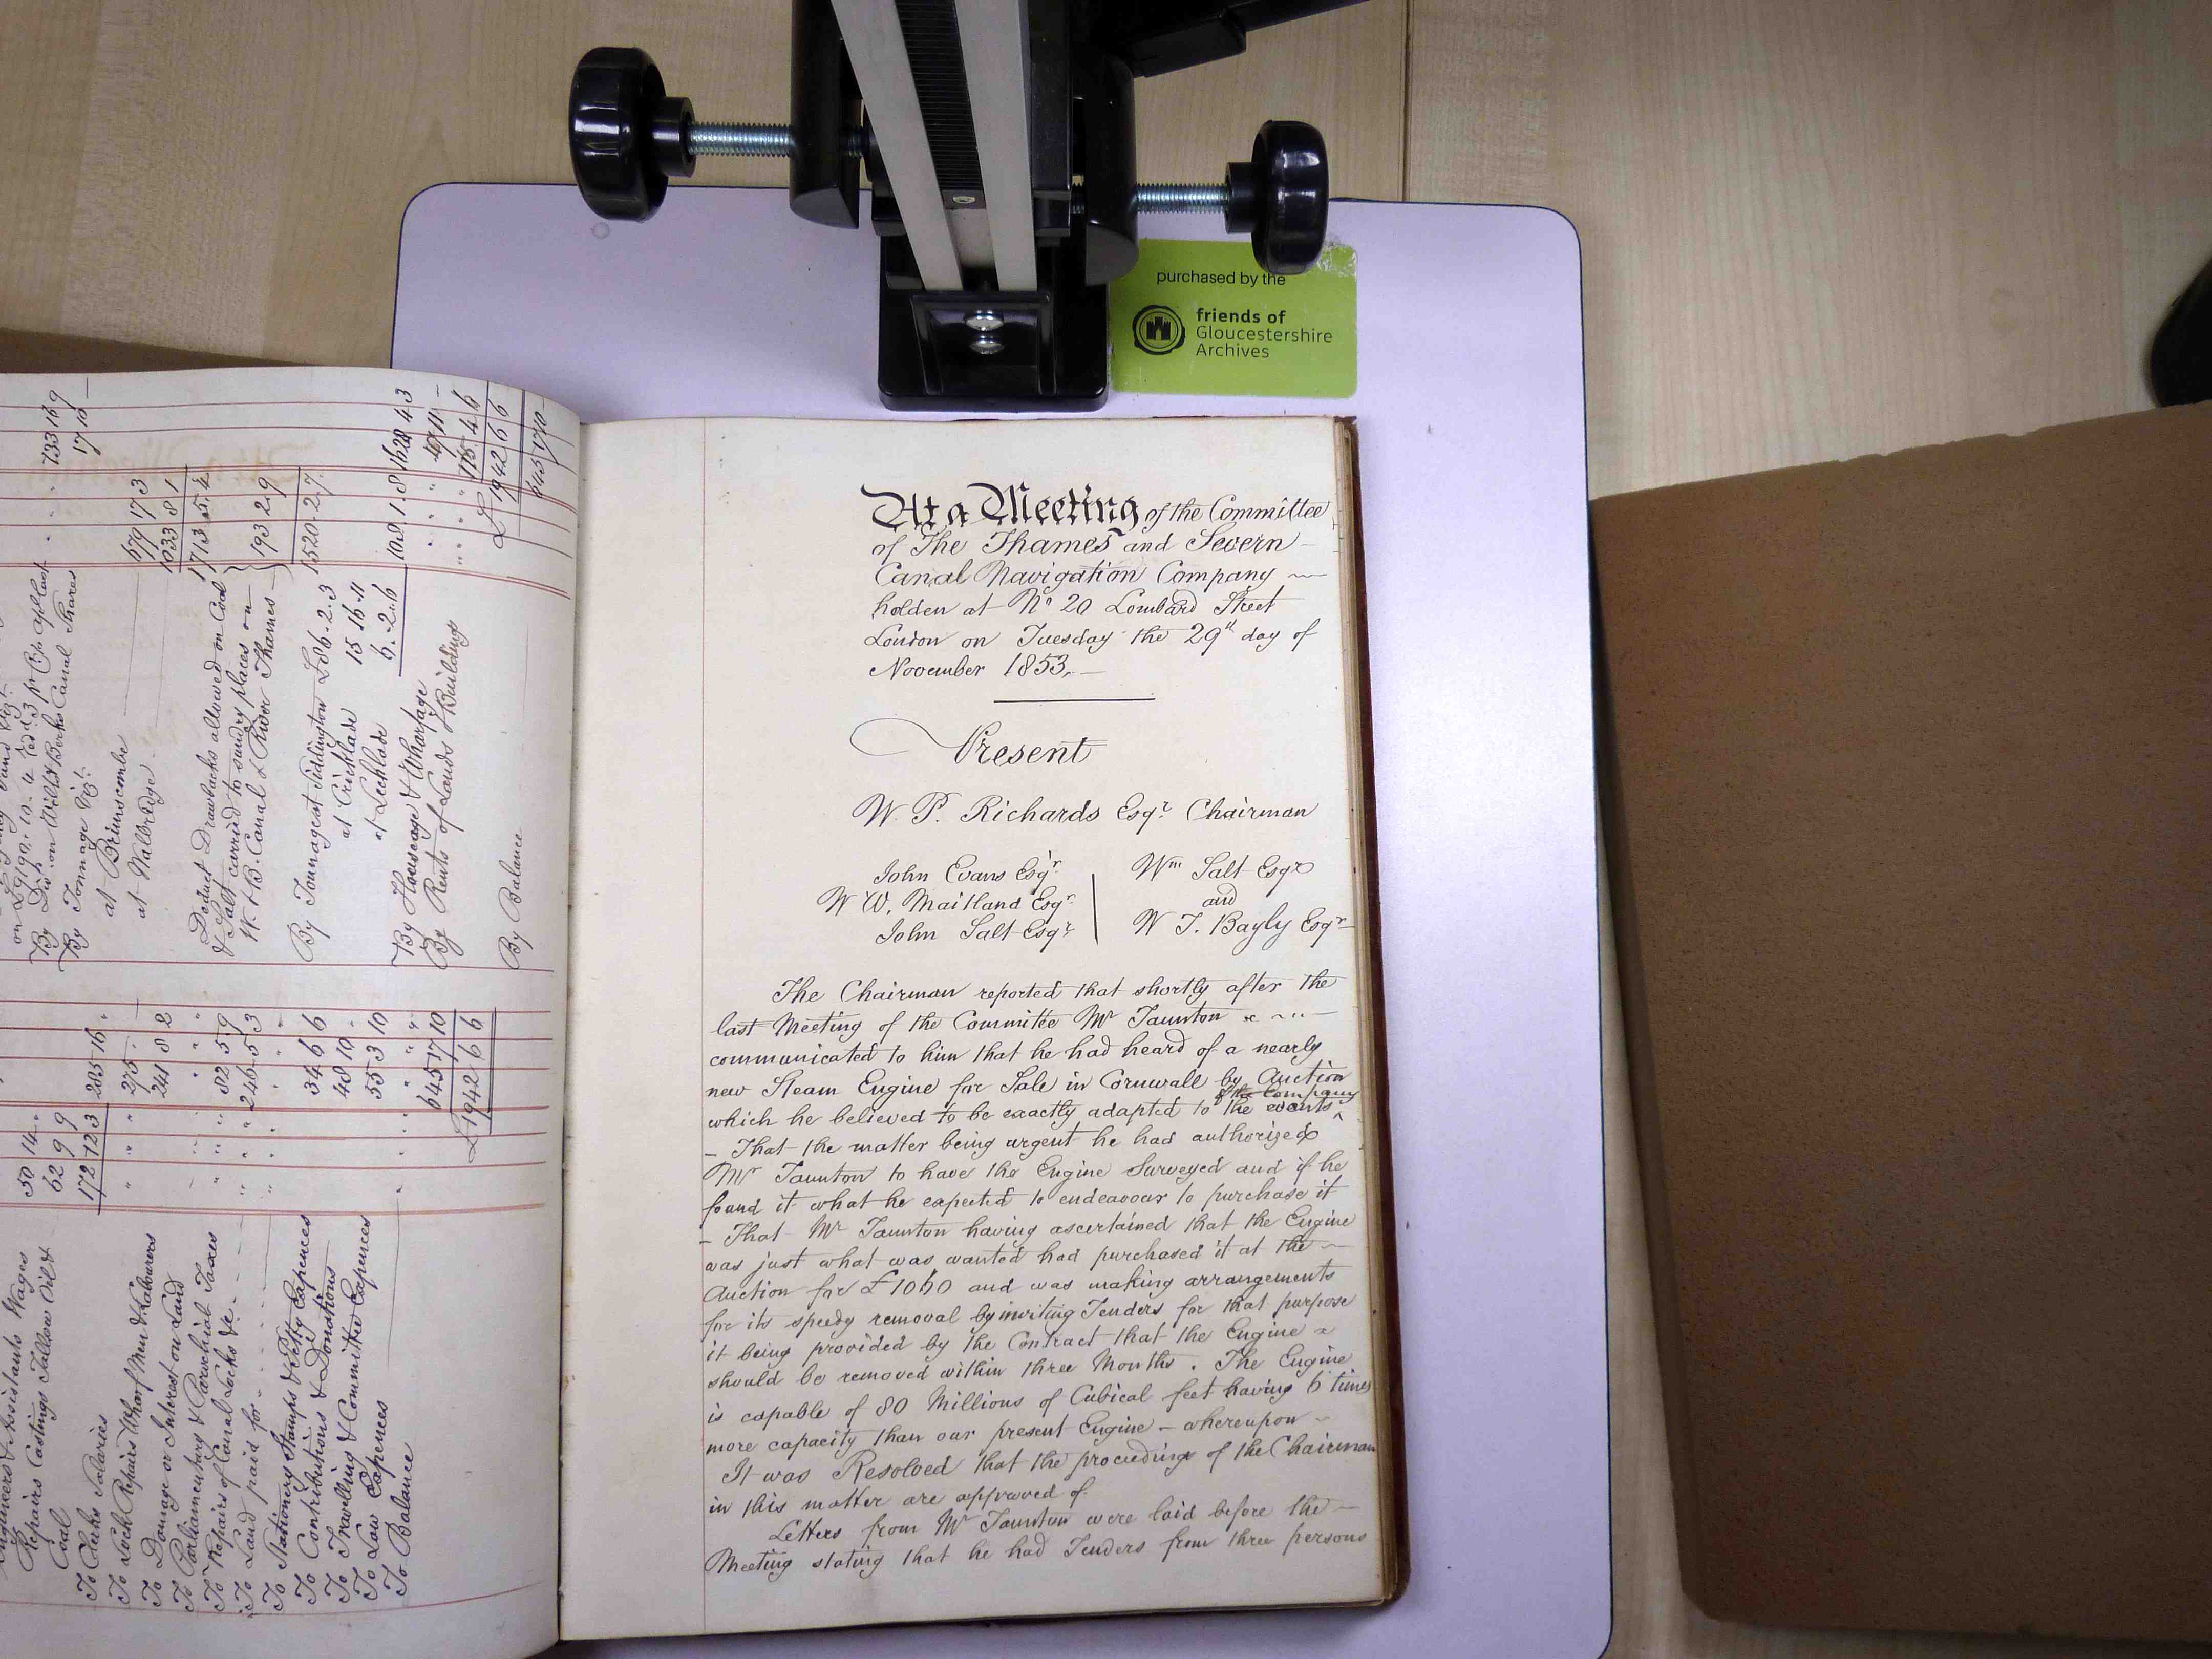 purchased by the
friends of
Gloucestershire
Archives
on £9190.10.4
By Div on Wilts & Berks Canal Shares
733 16 9
17 10 –
By Tonnage viz.t
at Brimscombe 679 17 3
at Wallbridge 1033 8 1
1713 5 4
Deduct Drawbacks allowed on Coal
& Salt carried to sundry places on
W. & B. Canal & River Thames
193 2 9
1520 2 7
By Tonnages at Siddington £86.2.3
at Cricklade 15 16 11
at Lechlade 6.2.6
108.1.8 1628 4 3
By Houseage & Wharfage
By Rents of Lands & Buildings
£ 1942 6 6
By Balance 645 17 10
Assistants Wages
Repairs Castings Tallow Oil &c 50 14 "
Coal 62 9 9
172 12 3 285 16 "
To Clerks Salaries 275 " –
To Lock Repairs Wharf Men & Labourers 241 8 2
To Damage or Interest on Land
To Parliamentary & Parochial Taxes 82 5 9
To Repairs of Canal Locks &c 246 5 3
To Land paid for
To Stationery Stamps & Petty Expences 34 6 6
To Contributions & Donations 48 10 "
To Travelling & Committee Expences 55 3 10
To Law Expences
To Balance 645 17 10
£ 1942 6 6
At a Meeting of the Committee
of The Thames and Severn
Canal Navigation Company
holden at No 20 Lombard Street
London on Tuesday the 29th day of
November 1853.
Present
W. P. Richards Esqr. Chairman
John Evans Esqr.
W W. Maitland Esqr.
John Salt Esqr
Wm Salt Esqr
and
W T. Bayly Esqr
The Chairman reported that shortly after the
last Meeting of the Committee Mr Taunton
communicated to him that he had heard of a nearly
new Steam Engine for Sale in Cornwall by Auction
which he believed to be exactly adapted to the wants ^ of the Company
– That the matter being urgent he had authorized
Mr Taunton to have the Engine Surveyed and if he
found it what he expected to endeavour to purchase it
– That Mr Taunton having ascertained that the Engine
was just what was wanted had purchased it at the
Auction for £1060 and was making arrangements
for its speedy removal by inviting Tenders for that purpose
it being provided by the Contract that the Engine
should be removed within three Months. The Engine
is capable of 80 Millions of Cubical feet having 6 times
more capacity than our present Engine – whereupon
It was Resolved that the proceedings of the Chairman
in this matter are approved of
Letters from Mr Taunton were laid before the
Meeting stating that he had Tenders from three persons